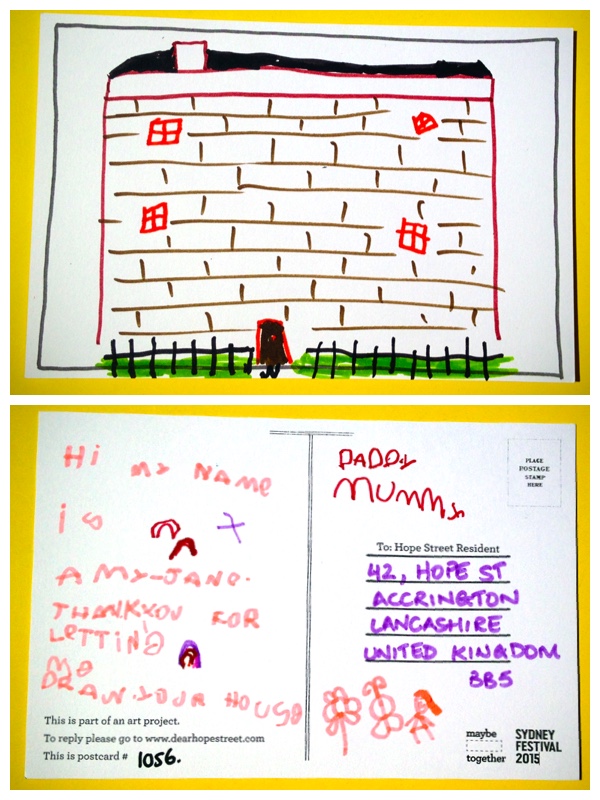 Hi MY NAMe
iS
AMY-JANe.
THANKYOU FOR
LeTTiNG
Me
DRAW YOUR HOUSe
This is part of an art project.
To reply please go to www.dearhopestreet.com
This is postcard # 1056.
DADDY
MUMMY
PLACE
POSTAGE
STAMP
HERE
To: Hope Street Resident
42, HOPE ST
ACCRINGTON
LANCASHIRE
UNITED KINGDOM
BB5
maybe
together
SYDNEY
FESTIVAL
2015